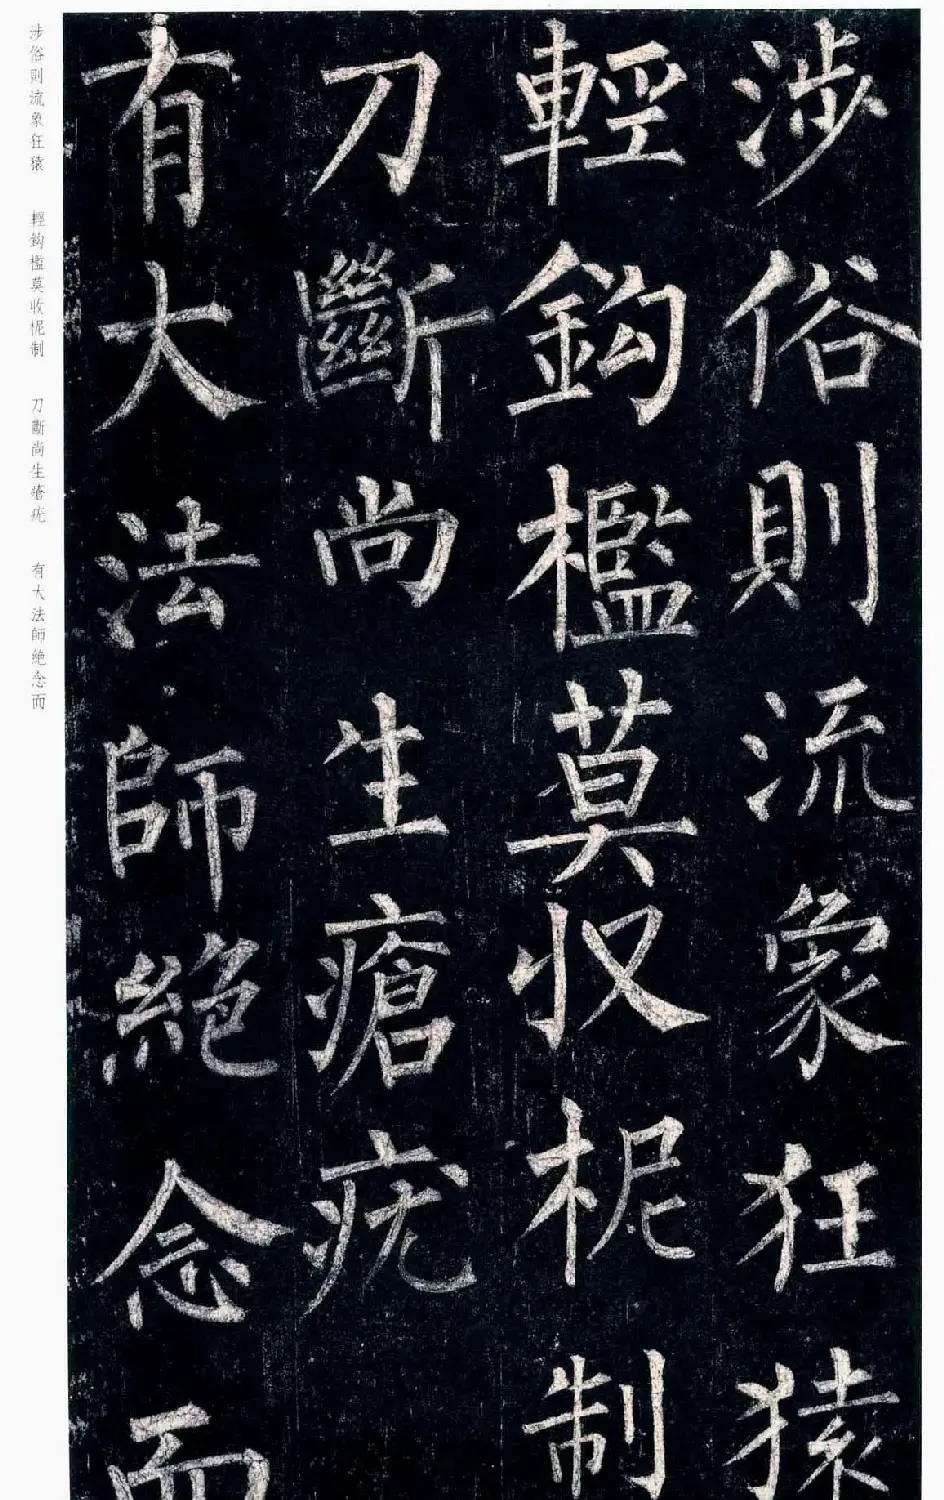 涉俗則流象狂猿
輕鈎檻莫收柅制
刀斷尚生瘡疣
有大法師絕念而
涉俗則流象狂猿 輕鈎檻莫收柅制 刀斷尚生瘡疣 有大法師絕念而